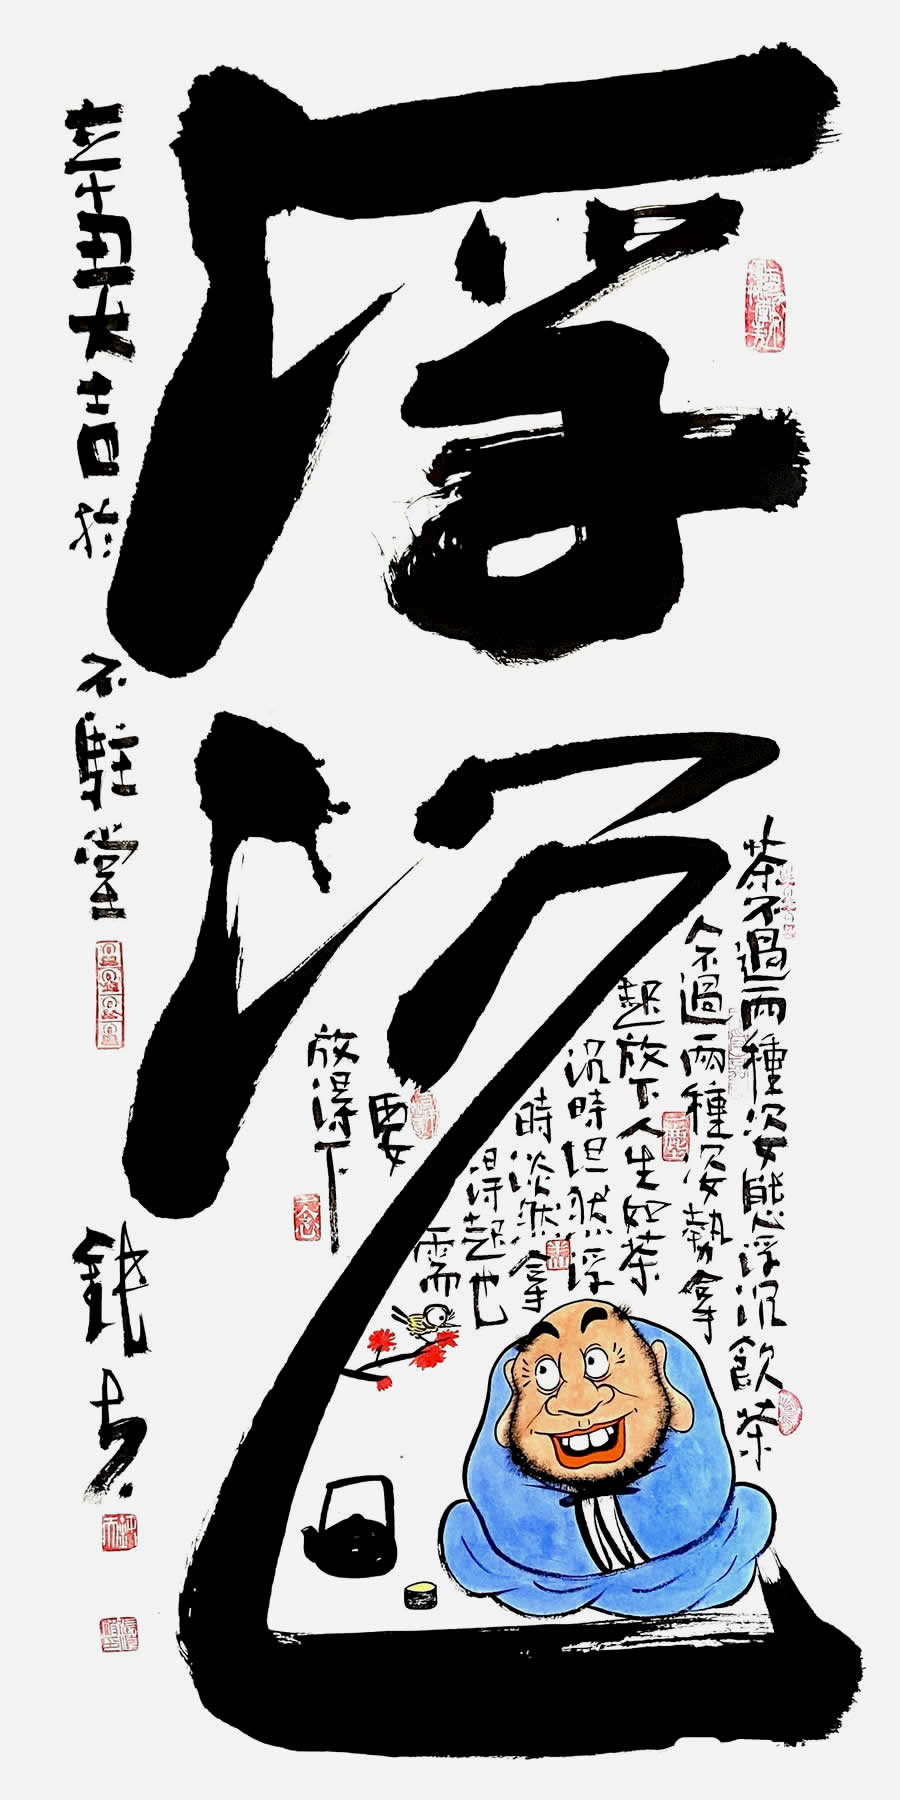 浮沉
茶不過兩種姿態浮沉飲茶
人不過兩種姿勢拿
起放下人生如茶
沉時坦然浮
時淡然拿
得起也
需
要
放得下
大吉於
不駐堂